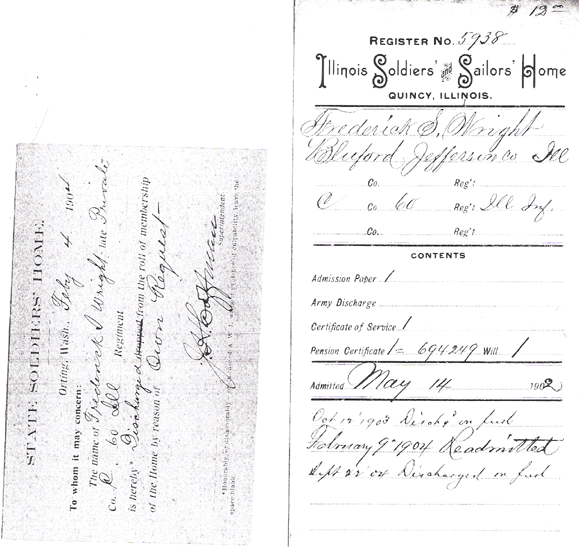 STATE SOLDIERS' HOME.
Orting, Wash., Feby 4 1902
To whom it may concern:
The name of Frederick S Wright late Private
Co. C. 60 Ill Regiment
is hereby Discharged dropped from the roll of membership
of the Home by reason of Own Request
Superintendent.
$ 12 00
REGISTER NO. 5938
Illinois Soldiers' and Sailors' Home
QUINCY, ILLINOIS.
Frederick S. Wright
Bluford Jefferson co Ill
Co. Reg't
C Co. 60 Reg't Ill Inf.
Co. Reg't
CONTENTS
Admission Paper 1
Army Discharge
Certificate of Service 1
Pension Certificate 1 = 694249 Will 1
Admitted May 14 1902
Oct 12 1903 Disch'd on furl
February 9" 1904 Readmitted
Sept 22 04 Discharged on furl